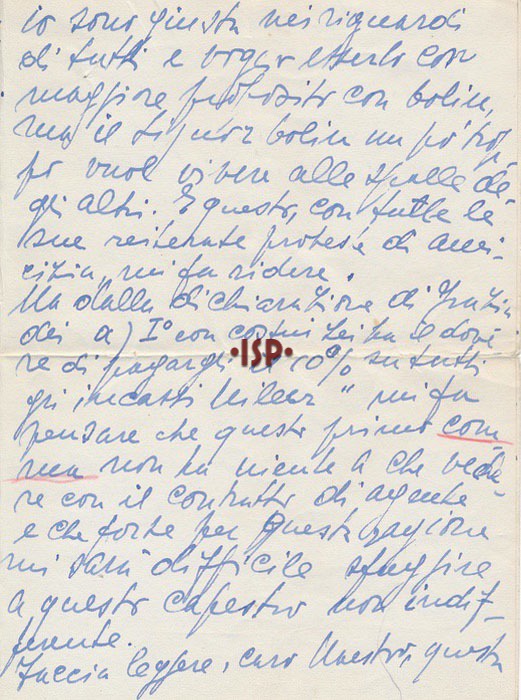 io sono giusta nei riguardi
di tutti e voglio esserlo con
maggiore proposito con bolin,
ma il signor bolin un po' trop
po vuol vivere alle spalle de-
gli altri. E questo, con tutte le
sue reiterate proteste di ami-
cizia, mi fa ridere.
Ma dalla dichiarazione di
dei a) I° con costui Lei ha il dove
re di pagargli il 10% su tutti
gli incassi " mi fa
pensare che questo primo com-
ma non ha niente a che vede-
re con il contratto di agente
e che forse per questa ragione
mi sarà difficile sfuggire
a questo capestro non indif-
ferente.
Faccia leggere, caro Maestro, questa
•ISP•